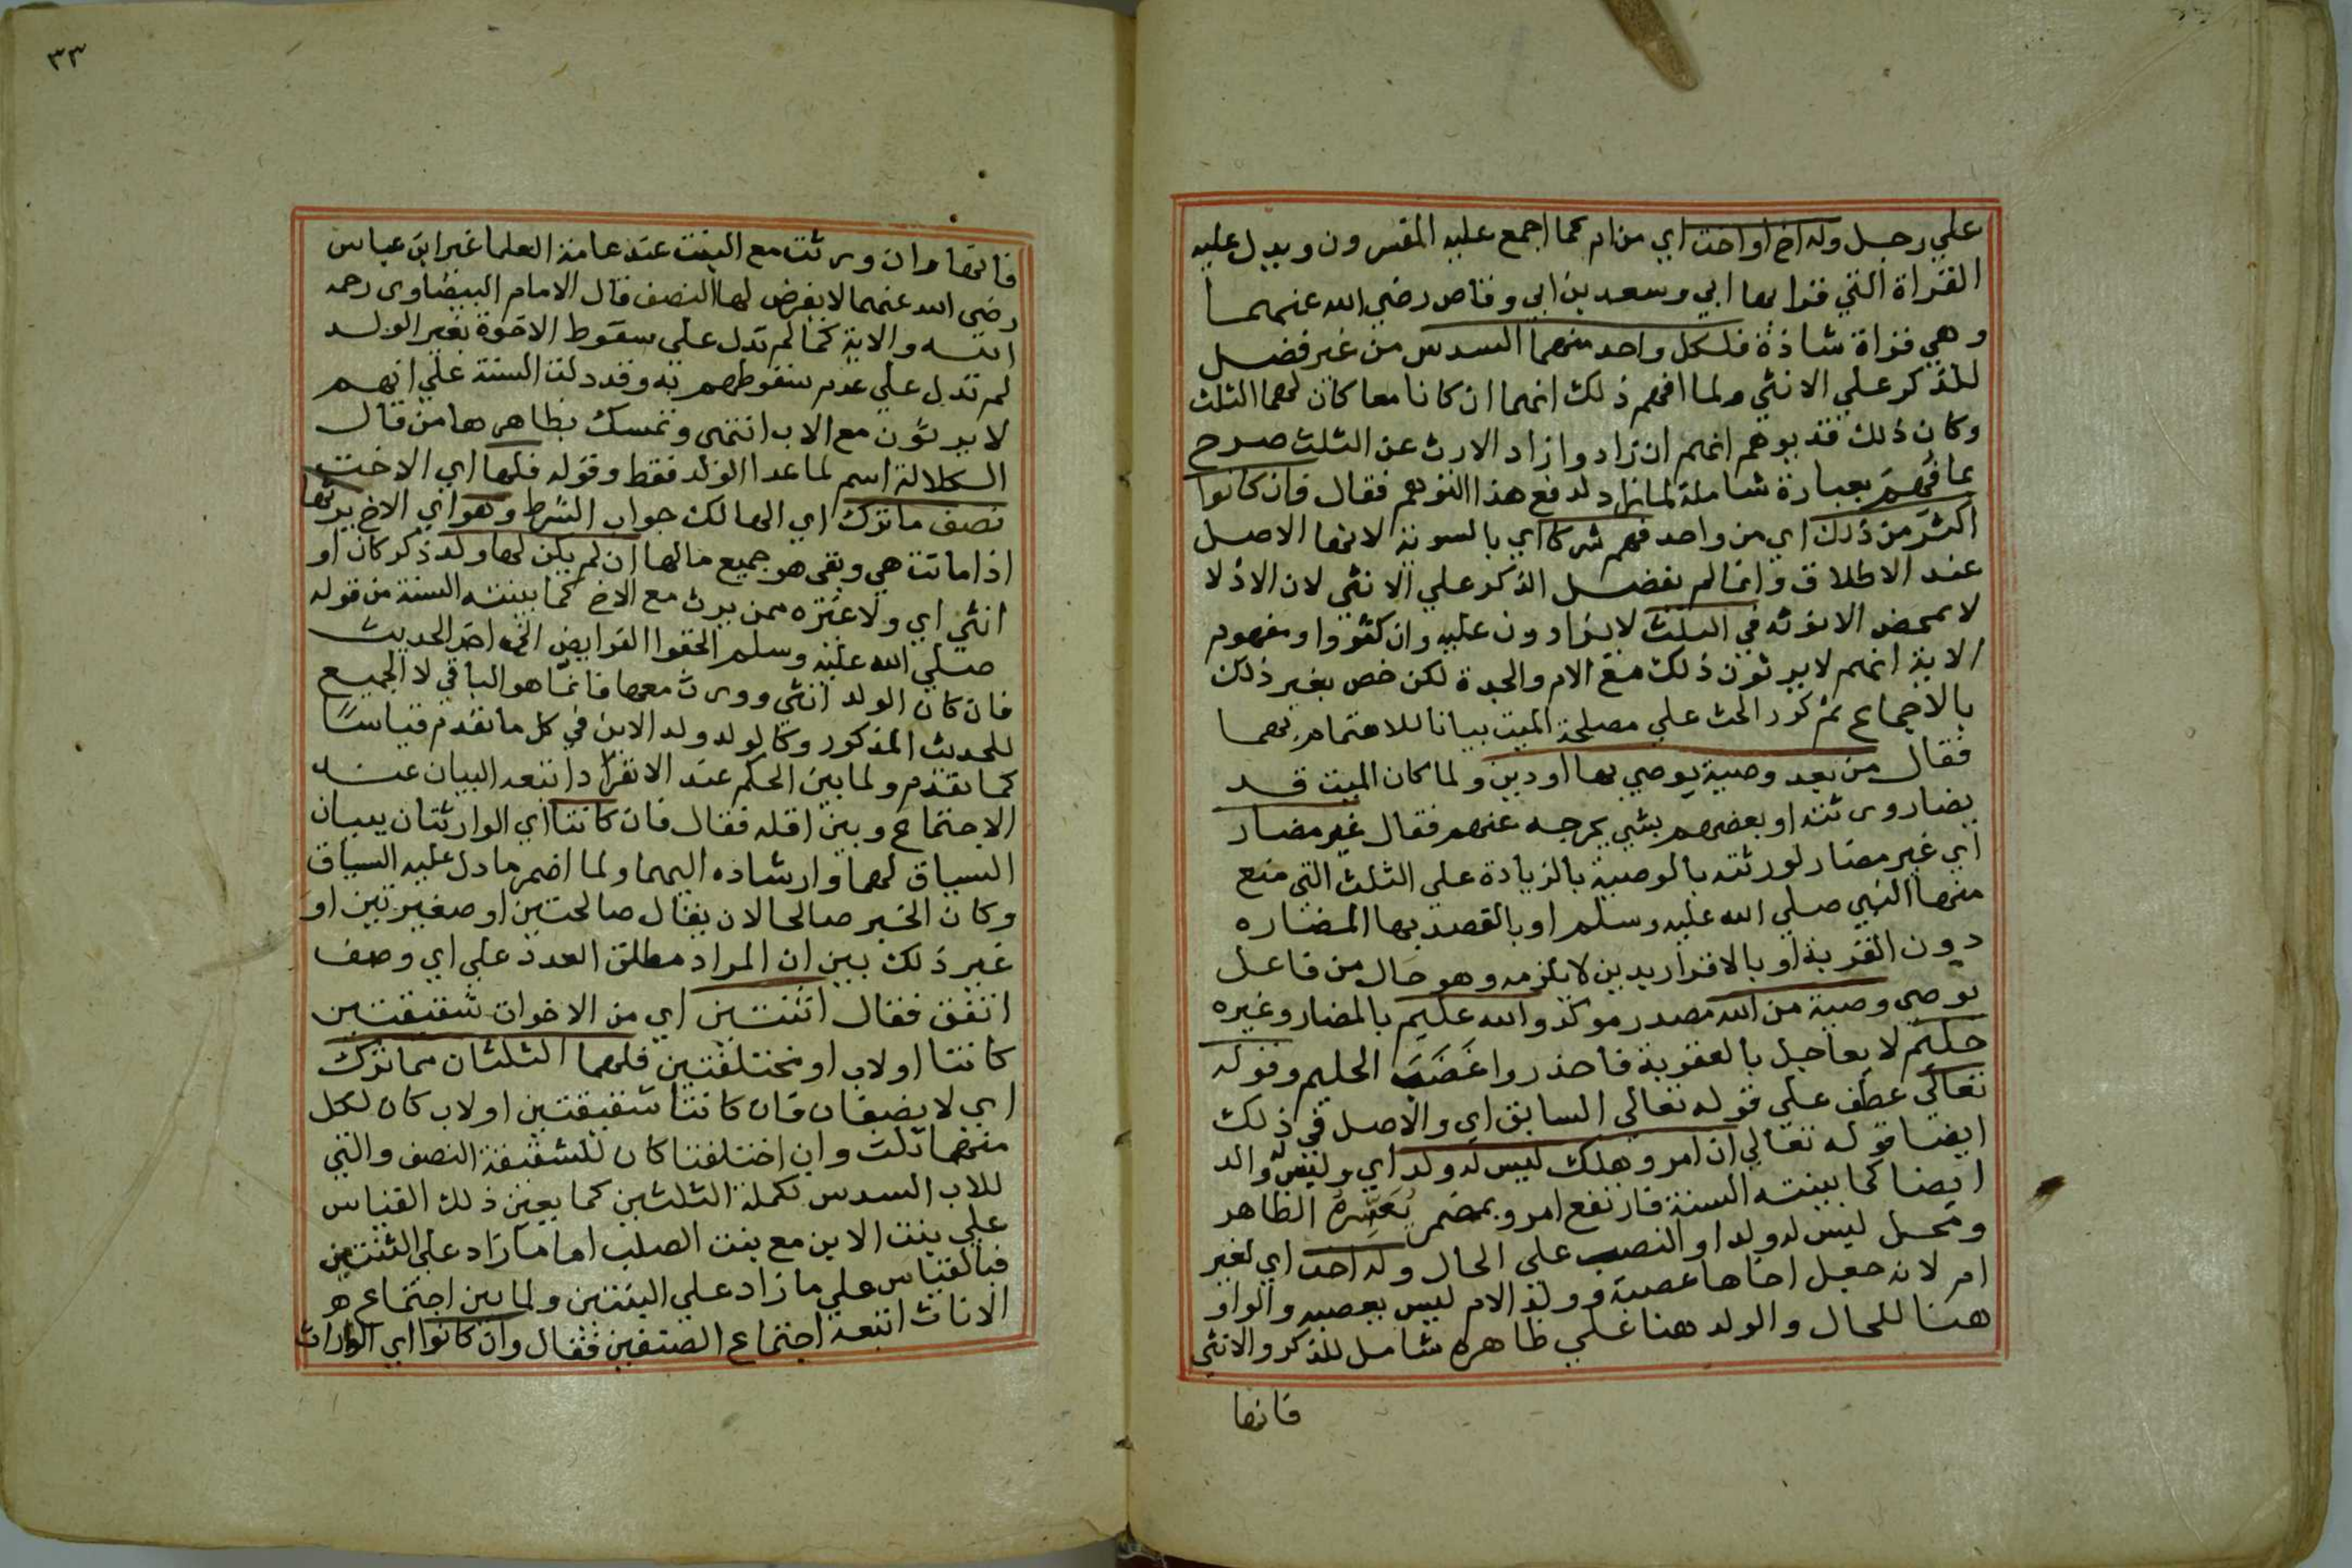 علي رجل وله اخ او اخت اي من ام كما اجمع عليه المفسرون ويدل عليه
القراة التي قرا بها ابي وسعد بن ابي وقاص رضي الله عنهما
وهي قراة شاذة فلكل واحد منهما السدس من غير فضل
للذكر علي الانثي ولما افهم ذلك انهما ان كانا معا كان لهما الثلث
وكان ذلك قد يوهم انهم ان زادوا زاد الارث عن الثلث صرح
بما فهم بعبارة شاملة لما زاد لدفع هذا التوهم فقال فان كانوا
اكثر من ذلك اي من واحد فهم شركا اي بالسوية لانها الاصل
عند الاطلاق وانما لم يفضل الذكر علي الانثي لان الادلا
لا بمحض الانوثه في الثلث لا يزادون عليه وان كثروا ومفهوم
الاية انهم لا يرثون ذلك مع الام والجدة لكن خص بغير ذلك
بالاجماع ثم كرر الحث علي مصلحة الميت بيانا للاهتمام بها
فقال من بعد وصية يوصي بها او دين ولما كان الميت قد
يضار ورثته او بعضهم بشي يخرجه عنهم فقال غير مضار
اي غير مضار لورثته بالوصية بالزيادة علي الثلث التي منع
منها النبي صلي الله عليه وسلم او بالقصد بها المضاره
دون القربة او بالاقرار بدين لا يلزمه وهو حال من فاعل
يوصي وصية من الله مصدر موكد والله عليم بالمضار وغيره
حليم لا يعاجل بالعقوبة فاحذروا غضب الحليم وقوله
تعالي عطف علي قوله تعالي السابق اي والاصل في ذلك
ايضا قوله تعالي ان امرو هلك ليس له ولد اي وليس له والد
ايضا كما بينته السنة فارتفع امرو بمضمر يفسره الظاهر
ومحل ليس له ولد او النصب علي الحال وله اخت اي لغير
ام لانه جعل اخاها عصبة وولد الام ليس بعصبه والواو
هنا للحال والولد هنا علي ظاهره شامل للذكر والانثي
فانها
٣٣
فانها وان ورثت مع البنت عند عامة العلما غير ابن عباس
رضي الله عنهما لا يفرض لها النصف قال الامام البيضاوي رحمه
الله والاية كما لم تدل علي سقوط الاخوة بغير الولد
لم تدل علي عدم سقوطهم به وقد دلت السنة علي انهم
لا يرثون مع الاب انتهي وتمسك بظاهرها من قال
الكلالة اسم لما عدا الولد فقط وقوله فلها اي الاخت
نصف ما ترك اي الهالك جواب الشرط وهو اي الاخ يرثها
اذا ماتت هي وبقي هو جميع مالها ان لم يكن لها ولد ذكر كان او
انثي اي ولا غيره ممن يرث مع الاخ كما بينته السنة من قوله
صلي الله عليه وسلم الحقوا الفرايض الي اخر الحديث
فان كان الولد انثي وورث معها فانما هو الباقي لا الجميع
للحديث المذكور وكالولد ولد الابن في كل ما تقدم قياسا
كما تقدم ولما بين الحكم عند الانفراد اتبعه البيان عند
الاجتماع وبين اقله فقال فان كانتا اي الوارثتان ببيان
السياق لهما وارشاده اليهما ولما اضمر ما دل عليه السياق
وكان الخبر صالحا لان يقال صالحتين او صغيرتين او
غير ذلك بين ان المراد مطلق العدد علي اي وصف
اتفق فقال اثنتين اي من الاخوات شقيقتين
كانتا او لاب او مختلفتين فلهما الثلثان مما ترك
اي لا يضعفان فان كانتا شقيقتين او لاب كان لكل
منهما ثلث وان اختلفتا كان للشقيقة النصف والتي
للاب السدس تكملة الثلثين كما يعين ذلك القياس
علي بنت الابن مع بنت الصلب اما ما زاد علي الثنتين
فبالقياس علي ما زاد علي البنتين ولما بين اجتماع
الاناث اتبعه اجتماع الصنفين فقال وان كانوا اي الوراث